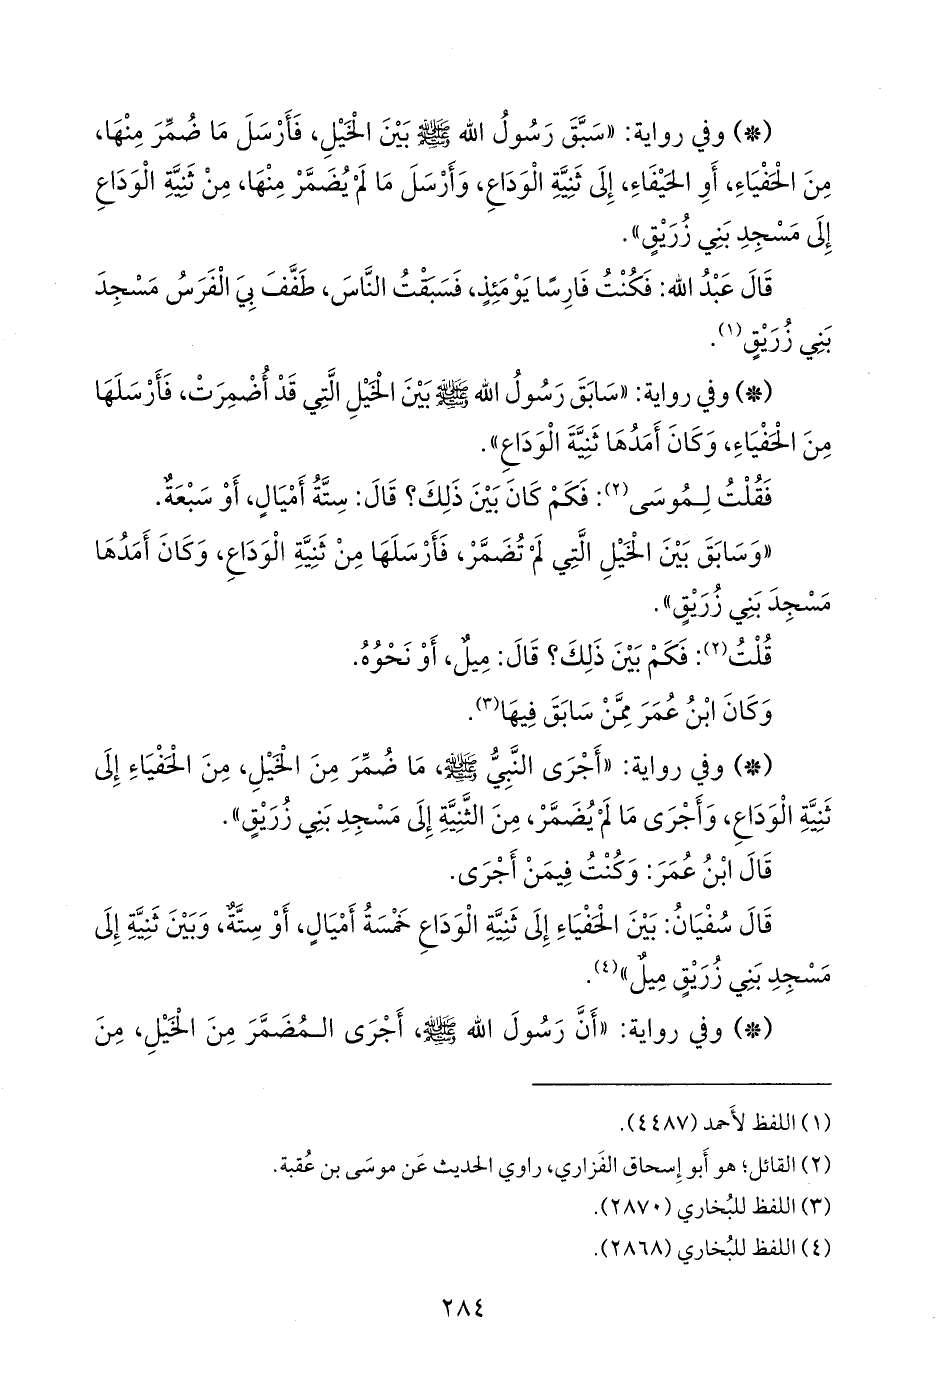 (*) وفي رواية: «سَبَّقَ رَسُولُ الله ﷺ بَيْنَ الْخَيْلِ، فَأَرْسَلَ مَا ضُمِّرَ مِنْهَا،
مِنَ الْحَفْيَاءِ، أَوِ الحَيْفَاءِ، إِلَى ثَنِيَّةِ الْوَدَاعِ، وَأَرْسَلَ مَا لَمْ يُضَمَّرْ مِنْهَا، مِنْ ثَنِيَّةِ الْوَدَاعِ
إِلَى مَسْجِدِ بَنِي زُرَيْقٍ».
قَالَ عَبْدُ الله: فَكُنْتُ فَارِسًا يَوْمَئِذٍ، فَسَبَقْتُ النَّاسَ، طَفَّفَ بِيَ الْفَرَسُ مَسْجِدَ
بَنِي زُرَيْقٍ(١).
(*) وفي رواية: «سَابَقَ رَسُولُ الله ﷺ بَيْنَ الْخَيْلِ الَّتِي قَدْ أُضْمِرَتْ، فَأَرْسَلَهَا
مِنَ الْحَفْيَاءِ، وَكَانَ أَمَدُهَا ثَنِيَّةَ الْوَدَاعِ».
فَقُلْتُ لِمُوسَى(٢): فَكَمْ كَانَ بَيْنَ ذَلِكَ؟ قَالَ: سِتَّةُ أَمْيَالٍ، أَوْ سَبْعَةٌ.
«وَسَابَقَ بَيْنَ الْخَيْلِ الَّتِي لَمْ تُضَمَّرْ، فَأَرْسَلَهَا مِنْ ثَنِيَّةِ الْوَدَاعِ، وَكَانَ أَمَدُهَا
مَسْجِدَ بَنِي زُرَيْقٍ».
قُلْتُ(٢): فَكَمْ بَيْنَ ذَلِكَ؟ قَالَ: مِيلٌ، أَوْ نَحْوُهُ.
وَكَانَ ابْنُ عُمَرَ مِمَّنْ سَابَقَ فِيهَا(٣).
(*) وفي رواية: «أَجْرَى النَّبِيُّ ﷺ، مَا ضُمِّرَ مِنَ الْخَيْلِ، مِنَ الْحَفْيَاءِ إِلَى
ثَنِيَّةِ الْوَدَاعِ، وَأَجْرَى مَا لَمْ يُضَمَّرْ، مِنَ الثَّنِيَّةِ إِلَى مَسْجِدِ بَنِي زُرَيْقٍ».
قَالَ ابْنُ عُمَرَ: وَكُنْتُ فِيمَنْ أَجْرَى.
قَالَ سُفْيَانُ: بَيْنَ الْحَفْيَاءِ إِلَى ثَنِيَّةِ الْوَدَاعِ خَمْسَةُ أَمْيَالٍ، أَوْ سِتَّةٌ، وَبَيْنَ ثَنِيَّةِ إِلَى
مَسْجِدِ بَنِي زُرَيْقٍ مِيلٌ»(٤).
(*) وفي رواية: «أَنَّ رَسُولَ الله ﷺ، أَجْرَى الـمُضَمَّرَ مِنَ الْخَيْلِ، مِنَ
(١) اللفظ لأَحمد (٤٤٨٧).
(٢) القائل؛ هو أَبو إِسحاق الفَزاري، راوي الحديث عَن موسَى بن عُقبة.
(٣) اللفظ للبُخاري (٢٨٧٠).
(٤) اللفظ للبُخاري (٢٨٦٨).
٢٨٤